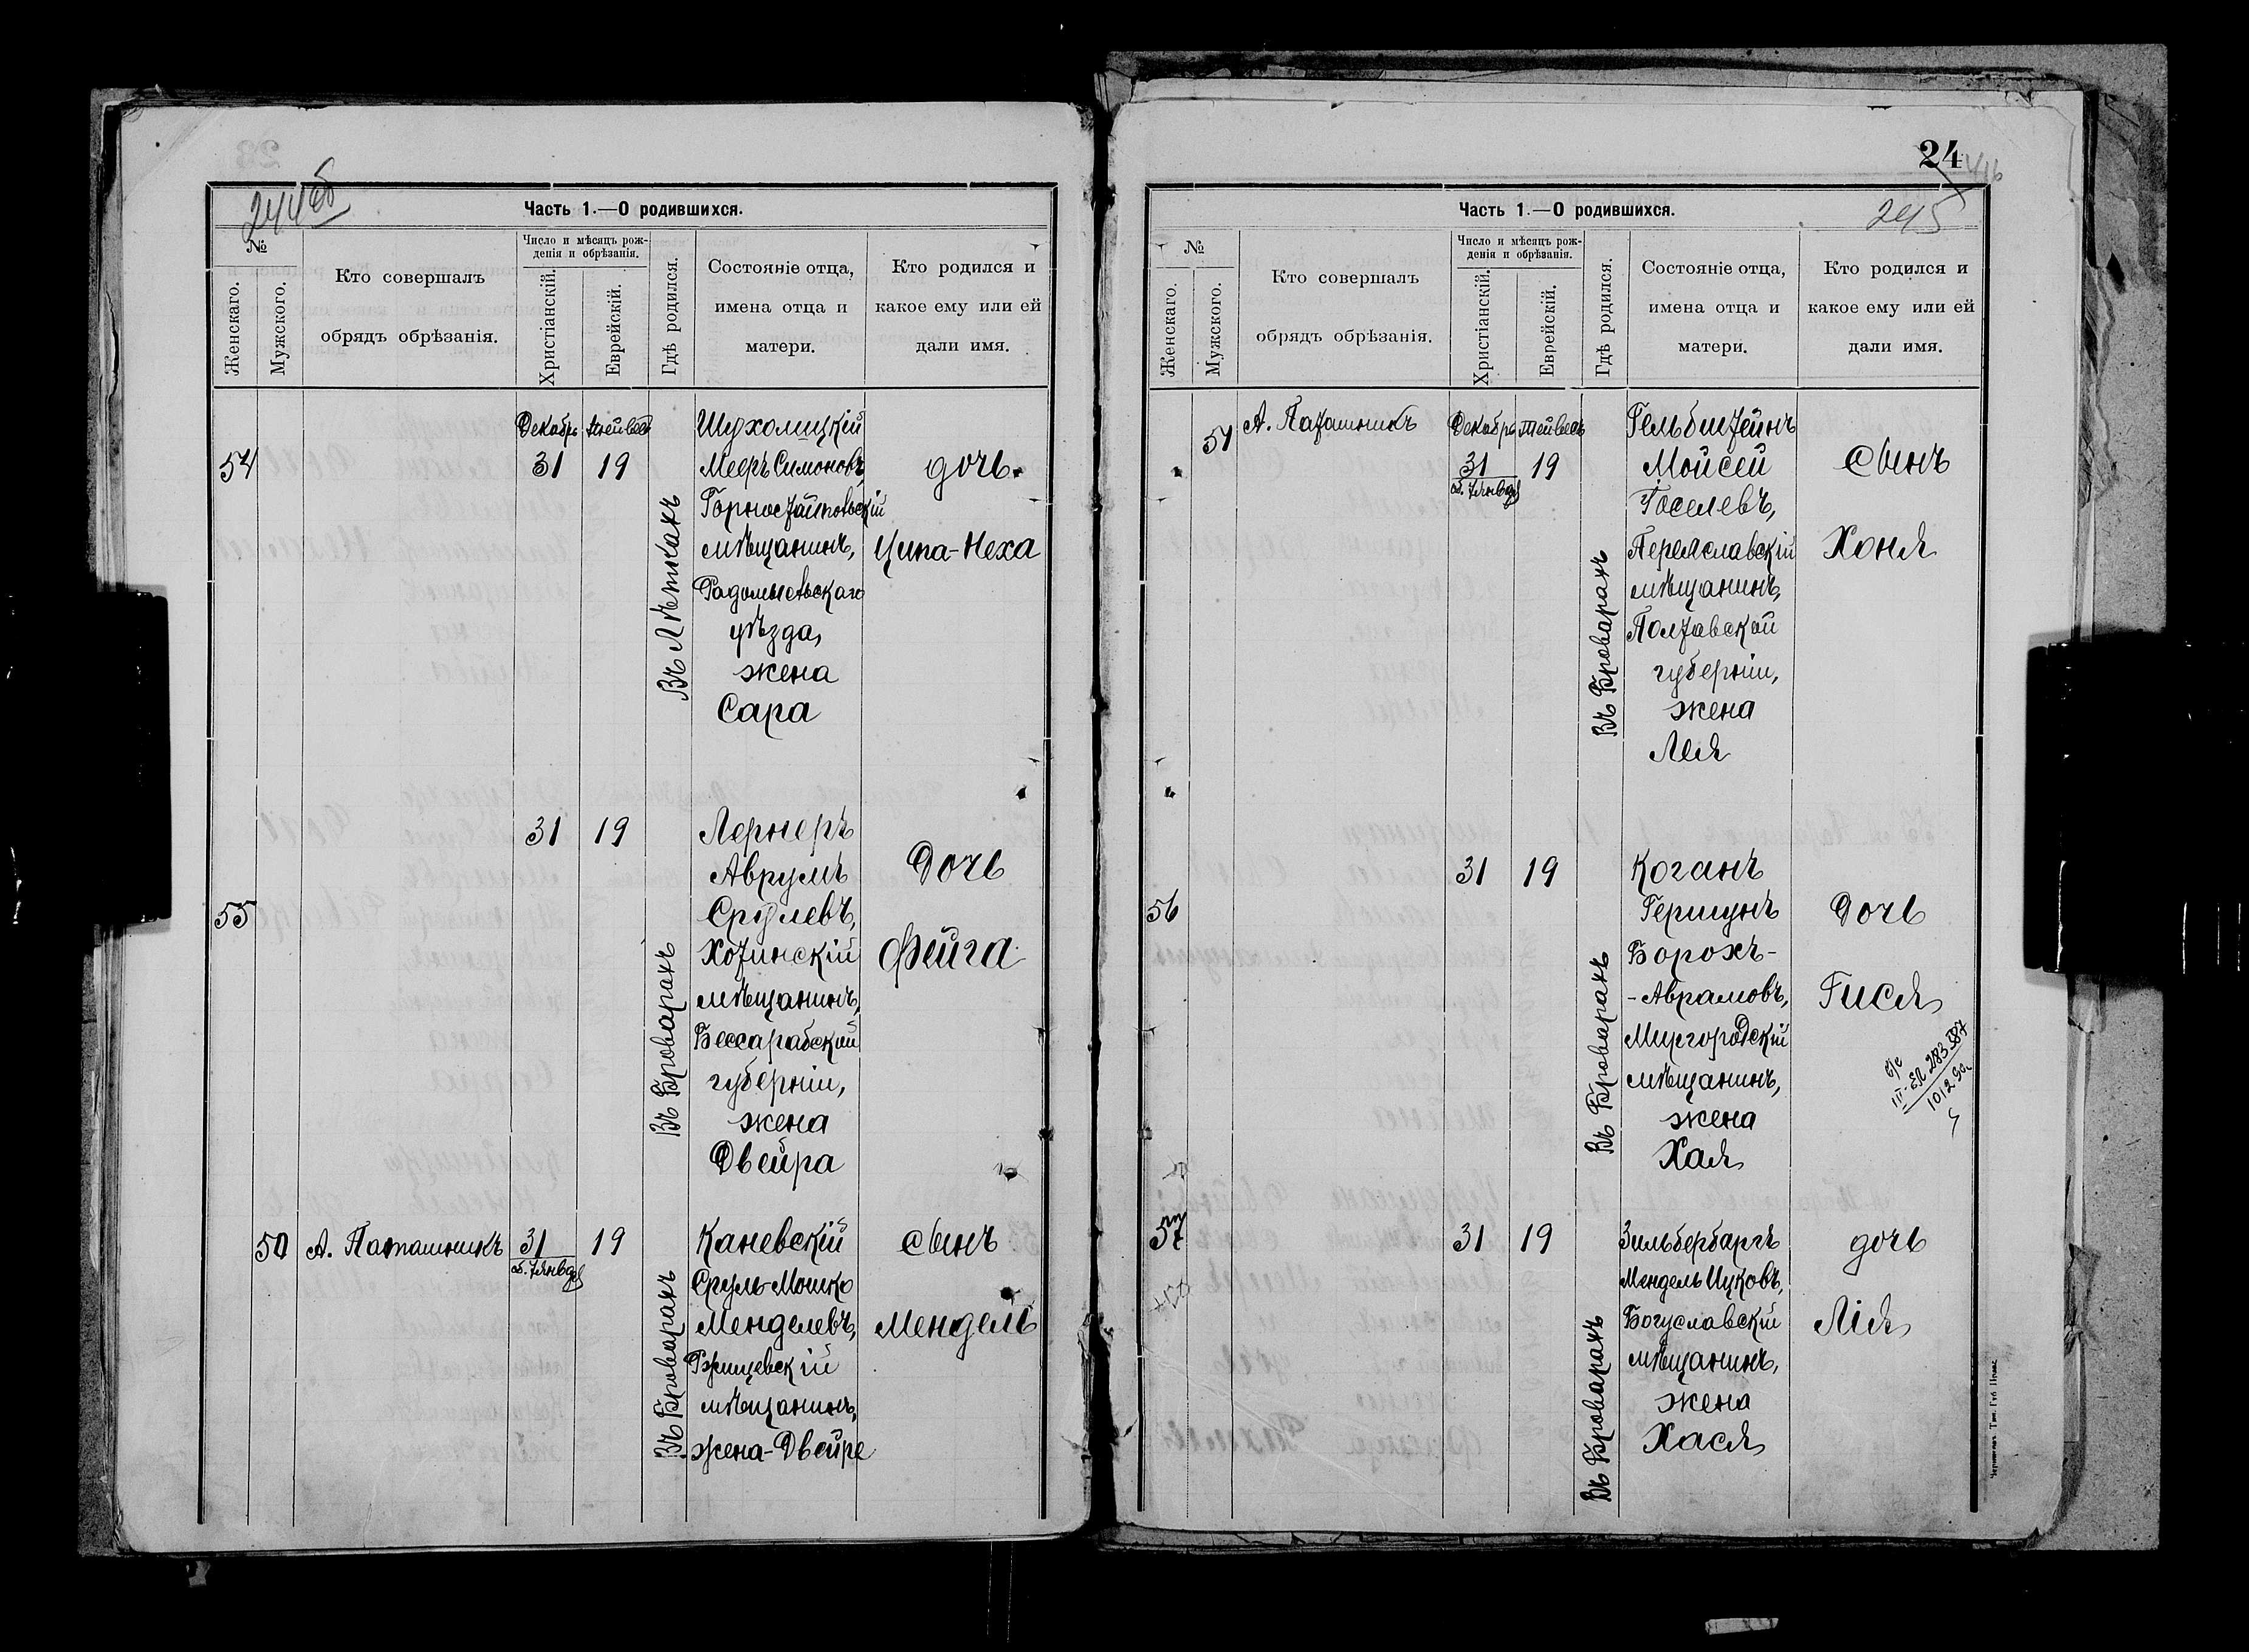 244об
Часть 1.—О родившихся.
№
Женскаго.
Мужского.
Кто совершалъ
обрядъ обрѣзанія.
Число и мѣсяцъ рож-
денія и обрѣзанія.
Христіанскій.
Еврейскій.
Гдѣ родился.
Состояніе отца,
имена отца и
матери.
Кто родился и
какое ему или ей
дали имя.
54
Декабрь
31
Тейвесъ
19
Въ Лѣткахъ
Шухомицкій
Мееръ Симоновъ,
Горностайпольскій
мѣщанинъ,
Радомысльскаго
уѣзда,
жена
Сара
дочь
Ципа-Неха
55
31
19
Въ Броварахъ
Лернеръ
Аврумъ
Срулевъ,
Хотинскій
мѣщанинъ,
Бессарабской
губерніи,
жена
Двейра
Дочь
Фейга
50
А. Паташникъ
31
об. 7 январ
19
Въ Броварахъ
Каневскій
Сруль-Мошко
Менделевъ,
Ржищевскій
мѣщанинъ,
жена-Двейре
сынъ
Мендель
24
245
Часть 1.—О родившихся.
№
Женскаго.
Мужского.
Кто совершалъ
обрядъ обрѣзанія.
Число и мѣсяцъ рож-
денія и обрѣзанія.
Христіанскій.
Еврейскій.
Гдѣ родился.
Состояніе отца,
имена отца и
матери.
Кто родился и
какое ему или ей
дали имя.
51
А. Паташникъ
Декабрь
31
об. 7 январ
Тейвесъ
19
Въ Броварахъ
Гельбштейнъ
Мойсей
Іоселевъ,
Переяславскій
мѣщанинъ,
Полтавской
губерніи,
жена
Лея
Сынъ
Хоня
56
31
19
Въ Броварахъ
Коганъ
Гершунъ
Борохъ-
-Аврамовъ,
Миргородскій
мѣщанинъ,
жена
Хая
Дочь
Гися
57
31
19
Въ Броварахъ
Зильбербаргъ
Мендель Ицковъ,
Богуславскій
мѣщанинъ,
жена
Хася
дочь
Лія